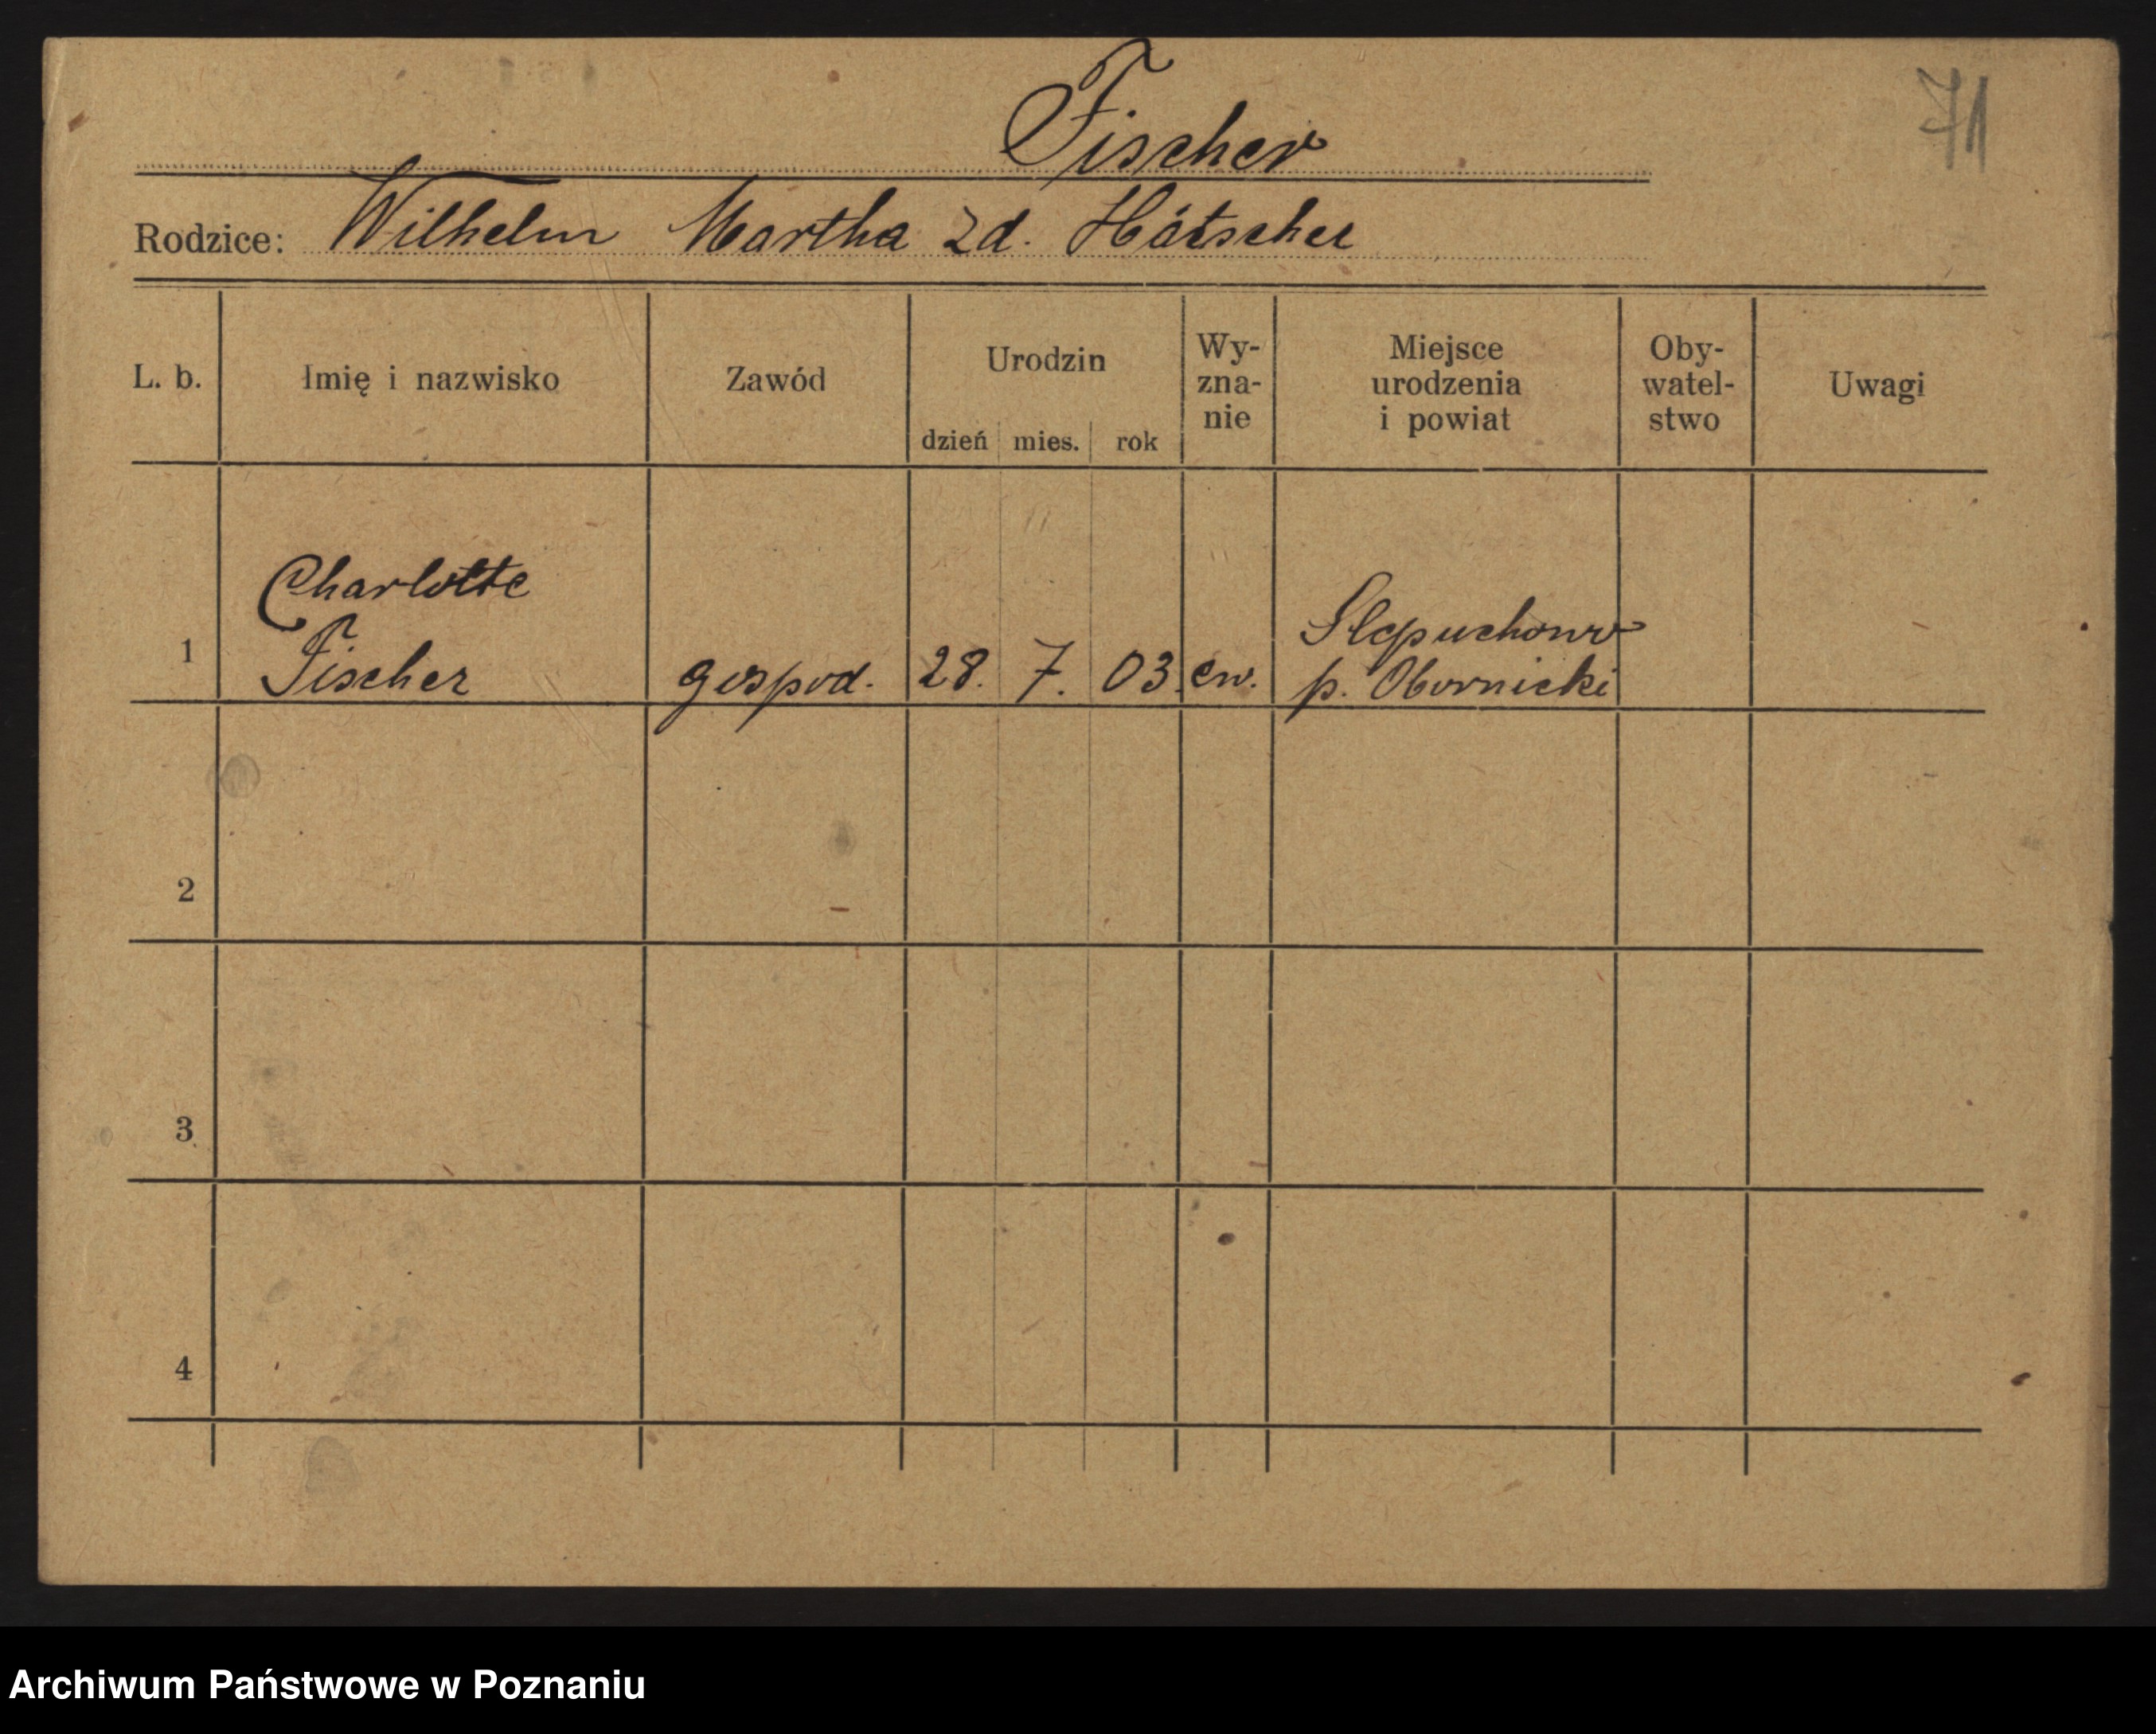 71
Fischer
Rodzice: Wilhelm Martha zd. Hätscher
L. b. Imię i nazwisko Zawód Urodzin dzień mies. rok Wy-zna-nie Miejsce urodzenia i powiat Oby-watel-stwo Uwagi
Charlotte
1 Fischer gospod. 28. 7. 03. ew. Slepuchowo
p. Obornicki
2
3
4
Archiwum Państwowe w Poznaniu